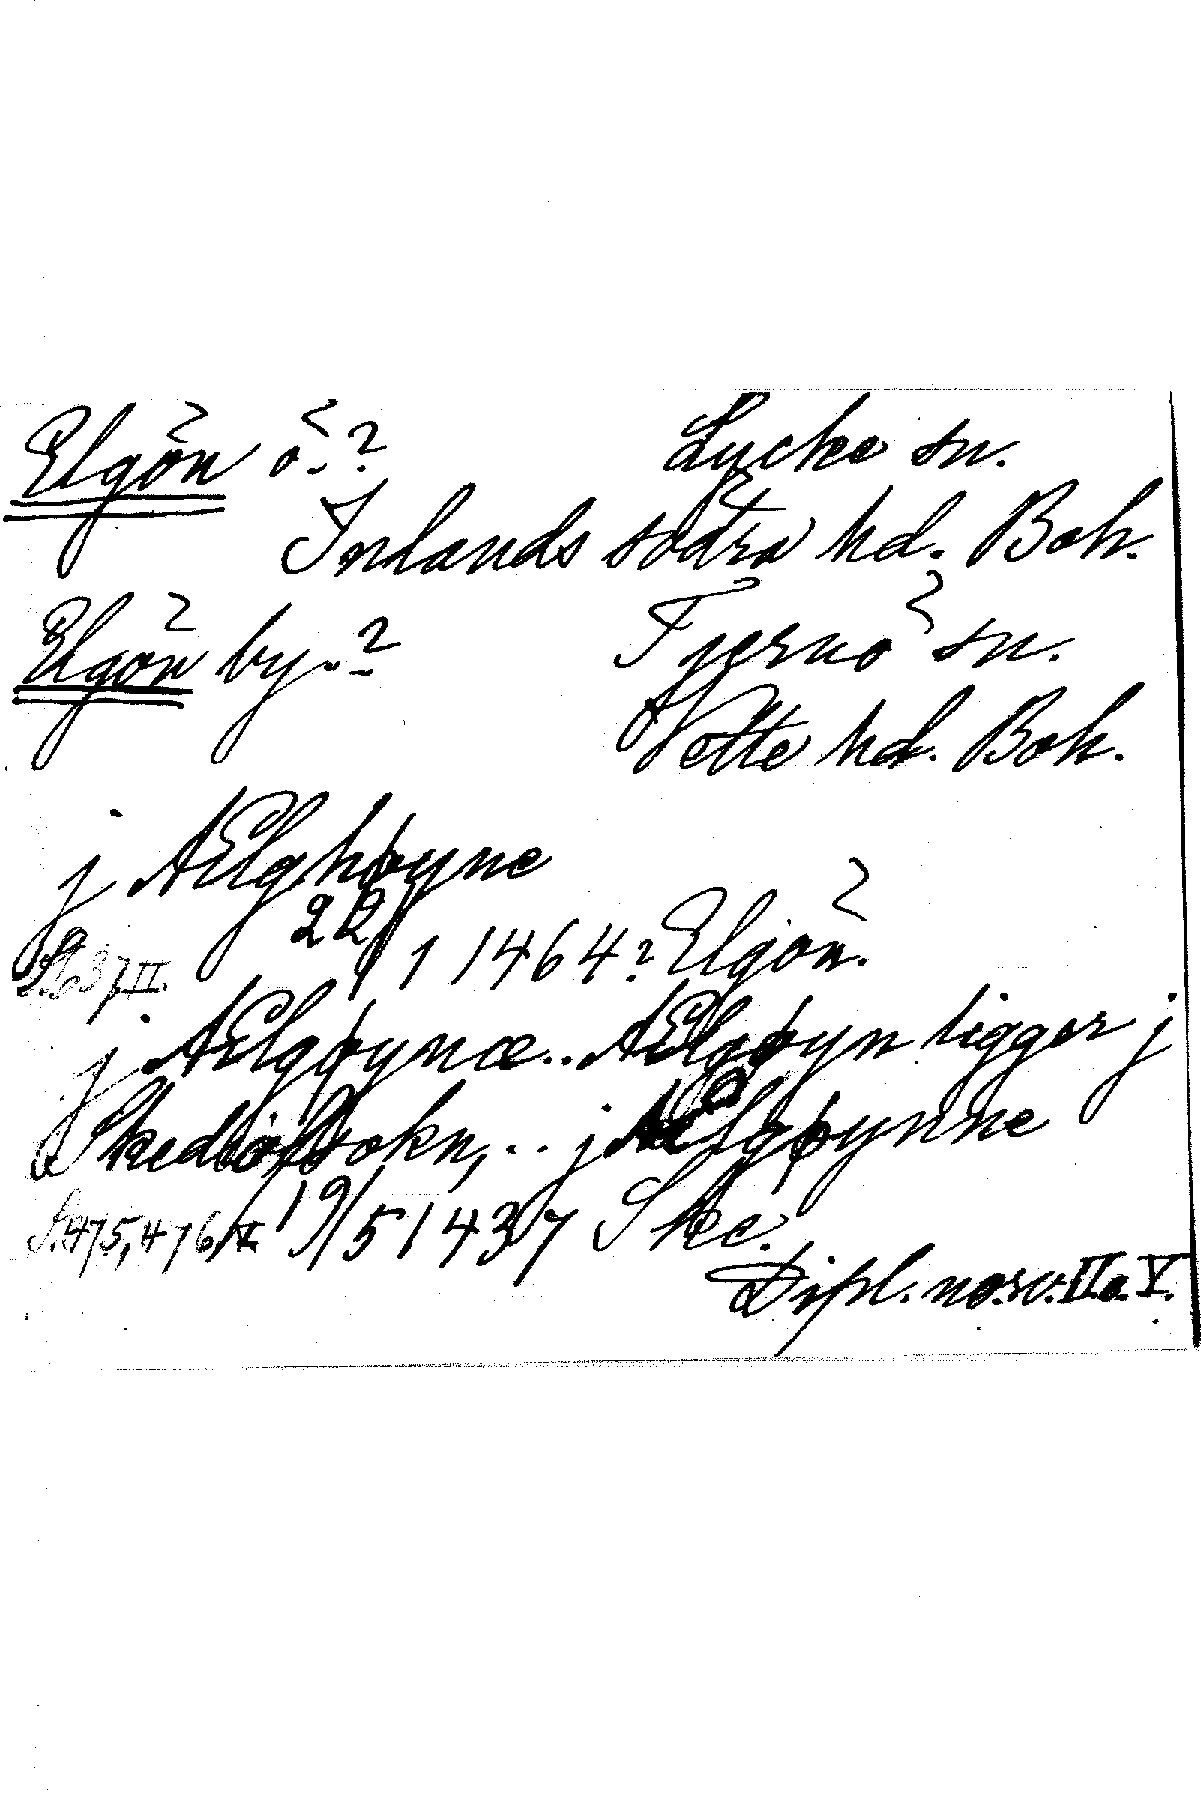 Elgön ö.? Lycke sn.
Inlands södra hd. Boh.
Elgön by.? Tjernö sn.
Vette hd. Boh.
j Ælghøyne
S. 637 II. 22/1 1464? Elgön.
j Ælgøynæ.. Ælgøyn ligger j
Skediofsokn,.. j Ælgøynne
S. 475, 476 V. 19/5 1437 Skee.
Dipl. norv. II o. V.